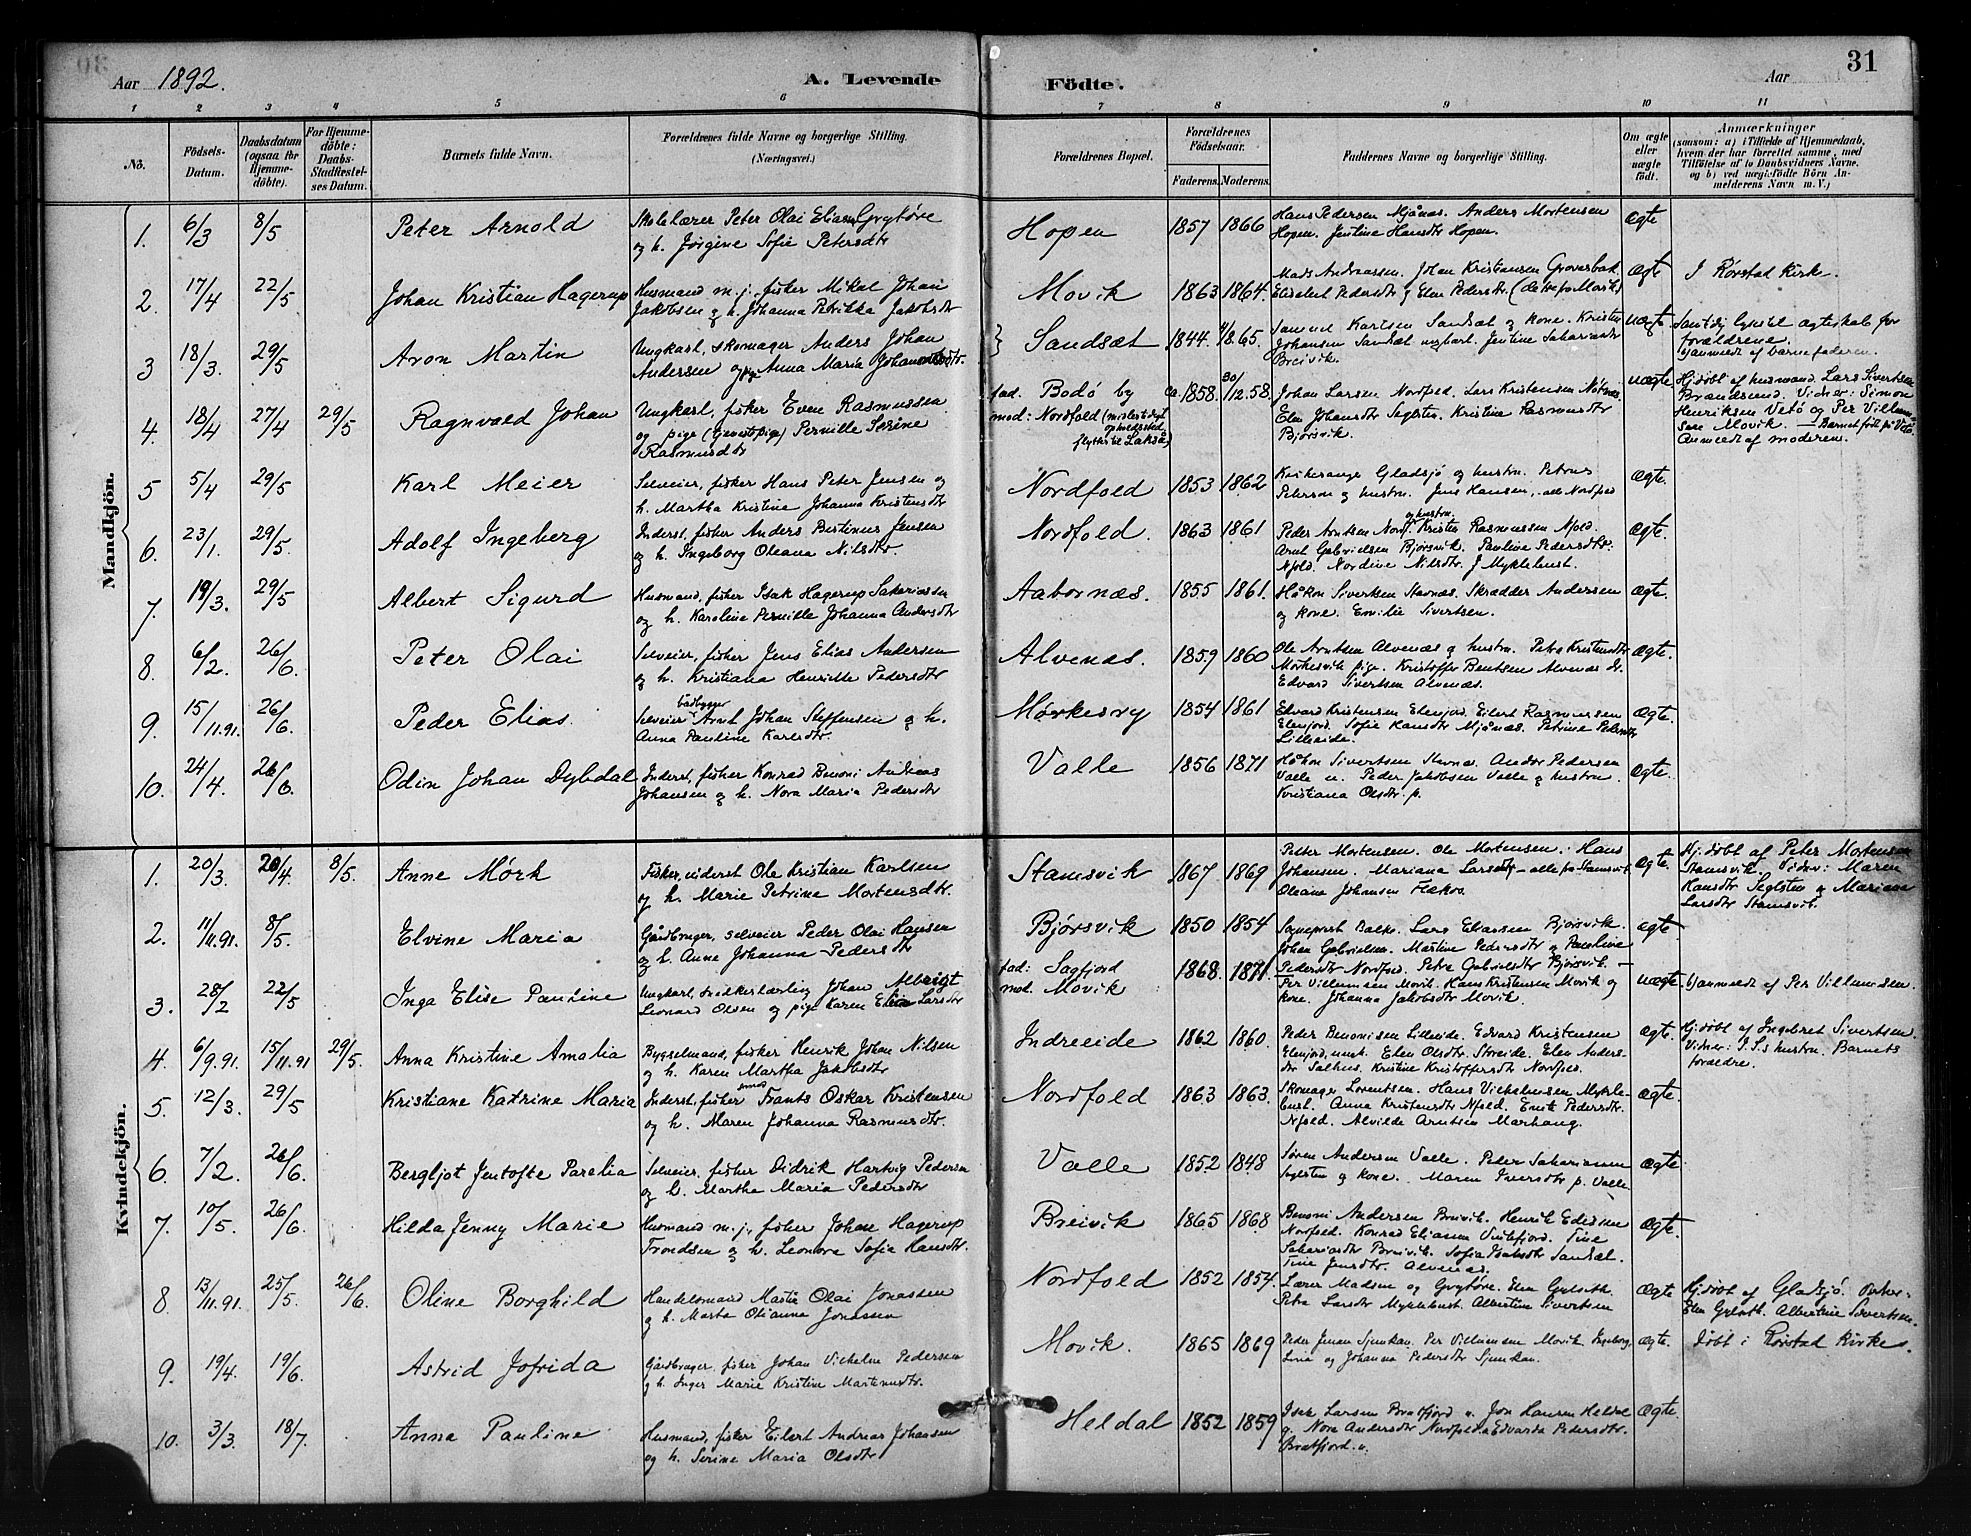 Aar 1892.
A. Levende
Födte.
Aar
31
1 2 3 4 5 6 7 8 9 10 11
Nö.
Födsels-
Datum.
Daabsdatum
(ogsaa for
Hjemme-
döbte).
For Hjemme-
döbte:
Daabs-
Stadfæstel-
ses Datum.
Barnets fulde Navn.
Forældrenes fulde Navne og borgerlige Stilling.
(Næringsvei.)
Forældrenes Bopæl.
Forældrenes
Födselsaar.
Faderens. Moderens.
Faddernes Navne og borgerlige Stilling.
Om ægte
eller
uægte
födt.
Anmærkninger
(saasom: a) i Tilfælde af Hjemmedaab,
hvem der har forrettet samme, med
Tilföielse af to Daabsvidners Navne,
og b) ved uægtefödte Börn An-
melderens Navn m. V.)
Mandkjön.
1. 6/3 8/5 Peter Arnold
Skolelærer Peter Olai Elias Grytöre
og h. Jörgine Sofie Petersdtr
Hopen 1857 1866
Hans Pedersen Mjånæs. Anders Mortensen
Hopen. Jentine Hansdtr Hopen.
ægte
2. 17/4 22/5 Johan Kristian Hagerup
Husmand m. j., fisker Mikal Johan
Jakobsen og h. Johanna Petrikka Jakobsdtr
Movik 1863 1864.
Mads Andreassen. Johan Kristiansen
Elisabet Pedersdtr og Elen Pedersdtr.
ægte
I Rørstad Kirke.
3 18/3. 29/5 Aron Martin
Ungkarl, skomager Anders Johan
Andersen og pige Anna Maria
Sandsæt 1844. 4/1865.
Samuel Karlsen Sandsæt og kone. Kristen
Johansen Sandsæt ungkarl. Jentine
Breivik.
uægte.
forældrene.
b) anmeldt af barnefaderen.
4. 18/4 27/4 29/5 Ragnvald Johan
Ungkarl, fisker Even Rasmussen
og pige (tjenestepige) Pernille Serine
Rasmusdtr
fad. Bodö by
mod: Nordfold
opholdssted,
flytter til Lakså)
ca. 1858. 30/12.58.
Johan Larsen Norfold. Lars Kristensen
Elen Johansdtr Seglsten. Kristine Rasmusdtr
Bjørsvik.
uægte
Hj.døbt af husmand Lars Sivertsen
Brandsund. Vidner: Simon
Henriksen Vetö og Per Villum-
sen Movik. — Barnet født på Vetö.
Anmeldt af moderen.
5 5/4 29/5 Karl Meier
Selveier, fisker Hans Peter Jensen og
h. Martha Kristine Johanna Kristensdtr
Nordfold 1853 1862
Kirkesanger Gladsjø og hustru. Petrus
Peterson og hustru. Jens Hansen, alle Nordfold
ægte.
6. 23/1. 29/5. Adolf Ingeberg
Inderst, fisker Anders Bertinus Jensen
og h. Ingeborg Oleana Nilsdtr.
Nordfold. 1863 1861
og hustru.
Peder Arntsen Nordf. Krister Rasmussen Nfold.
Arnt Gabrielsen Bjørsvik. Pauline Pedersdtr.
Nfold. Nordine Nilsdtr. J Myklebust.
ægte.
7. 19/3. 29/5 Albert Sigurd
Husmand, fisker Isak Hagerup Sakariassen
og h. Karoline Pernille Johanna Andersdtr
Aabornæs. 1855 1861.
Håkon Sivertsen Stavnæs. Skrædder Andersen
og kone. Emilie Sivertsen.
ægte.
8. 6/2. 26/6. Peter Olai
Selveier, fisker Jens Elias Andersen
og h. Kristiana Henriette Pedersdtr
Alvenæs. 1859 1860
Ole Arntsen Alvenæs og hustru. Petra Kristensdtr
Mørkesvik pige. Kristoffer Bentsen Alvenæs
Edvard Sivertsen Alvenæs.
ægte.
9. 15/11.91. 26/6. Peder Elias.
bådbygger
Selveier Arnt Johan Steffensen og h.
Anna Pauline Karlsdtr.
1854 1861
Edvard Kristensen Elenjord. Eilert Rasmussen
Elenjord. Sofie Hansdtr Mjånæs. Petrine Pedersdtr
Lilleeide.
ægte.
10. 24/4. 26/6. Odin Johan Dybdal
Inderst, fisker Konrad Benoni Andreas
Johansen og h. Nora Maria Pedersdtr
Valle 1856 1871
Håkon Sivertsen Stavnæs. Andor Pedersen
Valle u. Peder Jakobsen Valle og hustru.
Kristiana Olsdtr. p.
ægte.
Kvindekjön.
1. 20/3. 20/4. 8/5. Anne Mørk
Fisker, inderst Ole Kristian Karlsen
og h. Marie Petrine Mortensdtr.
Stamsvik 1867 1869
Petter Mortensen. Ole Mortensen. Hans
Johansen. Mariana Larsdtr – alle på Stamsvik.
Oleana Johansen
ægte.
Hj. døbt af Peter Mortensen
Stamsvik. Vidner: Maren
Hansdtr Seglsten og Mariana
Larsdtr Stamsvik.
2. 11/11.91. 8/5. Elvine Maria
Gårdbruger, selveier Peder Olai Hansen
og h. Anne Johanna Pedersdtr
Bjørsvik 1850 1854
Sogneprest Balke. Lars Eliassen Bjørsvik.
Johan Gabrielsen. Martine Pedersdtr og Pauline
Pedersdtr Nordfold. Petra Gabrielsdtr Bjørsvik. —
ægte
3. 28/2 22/5 Inga Elise Pauline
Ungkarl, snidkerlærling Johan Albrigt
Leonard Olsen og pige Karen Elisa Larsdtr
fad: Sagfjord
mod. Movik 1868. 1871.
Per Villumsen Movik. Hans Kristensen Movik og
kone. Johanna Jakobsdtr Movik.
uægte.
b) anmeldt af Per Villumsen.
4 6/9.91. 15/11.91 29/5. Anna Kristine Amalia
Bygselmand, fisker Henrik Johan Nilsen
og h. Karen Martha Jakobsdtr
Indreeide 1862 1860.
Peder Benonisen Lilleeide. Edvard Kristensen
Elenjord, ungk. Elen Olsdtr Storeide. Elen Anders-
dtr Salhus. Kristine Kristoffersdtr Nordfold.
ægte.
Hj.døbt af Ingebret Sivertsen.
Vidner: I. S.s hustru. Barnets
forældre.
5. 12/3. 29/5 Kristiane Katrine Maria
Inderst, fisker Frants Oskar Kristensen
og h. Maren Johanna Rasmusdtr.
Nordfold 1863 1863.
Skomager Lorentsen. Hans Vilhelmsen Mykle-
bust. Anna Kristensdtr Nfold. Enete Pedersdtr.
Nfold. Alvilde Arntsen Marhaug.
ægte.
6. 7/2. 26/6. Bergljot Jentofte Parelia
Selveier, fisker Didrik Hartvig Pedersen
og h. Martha Maria Pedersdtr
Valle 1852 1848
Søren Andersen Valle. Peter Sakariassen
Seglsten og kone. Maren Iversdtr p. Valle.
ægte
7. 10/5 26/6. Hilda Jenny Marie
Husmand m. j., fisker Johan Hagerup
Trondsen og h. Leonora Sofie Hansdtr.
Breivik 1865 1868
Benoni Andersen Breivik. Henrik
Nordfold. Konrad Eliassen Vinkfjord. Tine
Sakariasdtr Breivik. Sofia Isaksdtr Sandsæt.
Tine Jensdtr. Alvenæs.
ægte.
8. 13/11.91. 25/5. 26/6. Oline Borghild
Handelsmand Martin Olai Jonassen
og h. Marta Olianna Jonassen
Nordfold 1852 1854.
Lærer Madsen og Grytöre. Elen Gylseth.
Petra Larsdtr Myklebust. Albertine Sivertsen
ægte
Hj.døbt af Gladsjö.
Elen Gylseth. Albertine Sivertsen.
9. 19/4. 19/6. Astrid Jofrida
Gårdbruger, fisker Johan Vilhelm Pedersen
og h. Inger Marie Kristine Martinusdtr.
Movik. 1865 1869
Peder Jensen Sjunkan. Per Villumsen Movik. Ingeborg
Livia og Johanna Pedersdtr Sjunkan.
ægte.
Døbt i Rørstad Kirke.
10. 3/3. 18/7. Anna Pauline
Husmand, fisker Eilert Andreas Johansen
og h. Serine Maria Olsdtr
Heldal 1852 1859
Isak Larsen Bratfjord u. Jon Hansen Heldal
g. Nora Andersdtr Nordfold. Edvarda Pedersdtr.
Bratfjord. u.
ægte.